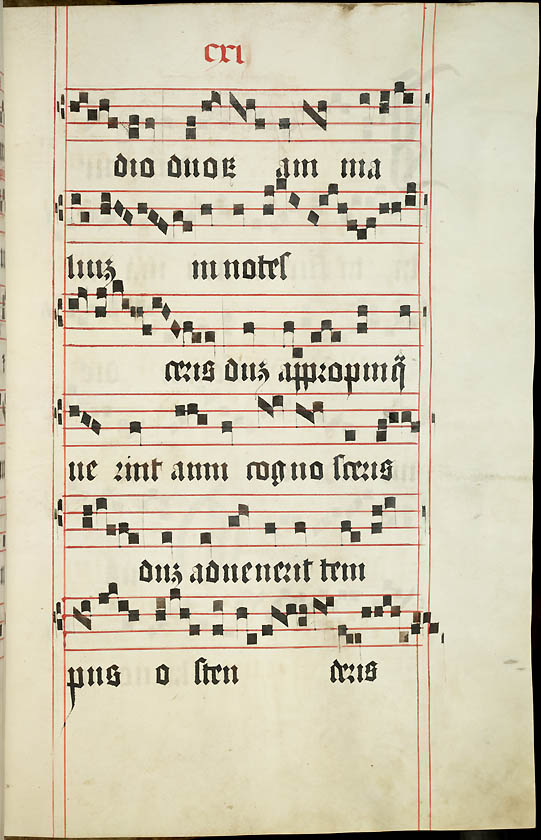 cxi
dio duoꝝ am ma
liuꝫ in notes
ceris duꝫ appropinq̃
ue rint anni cogno sceris
duꝫ aduenerit tem
pus o sten deris